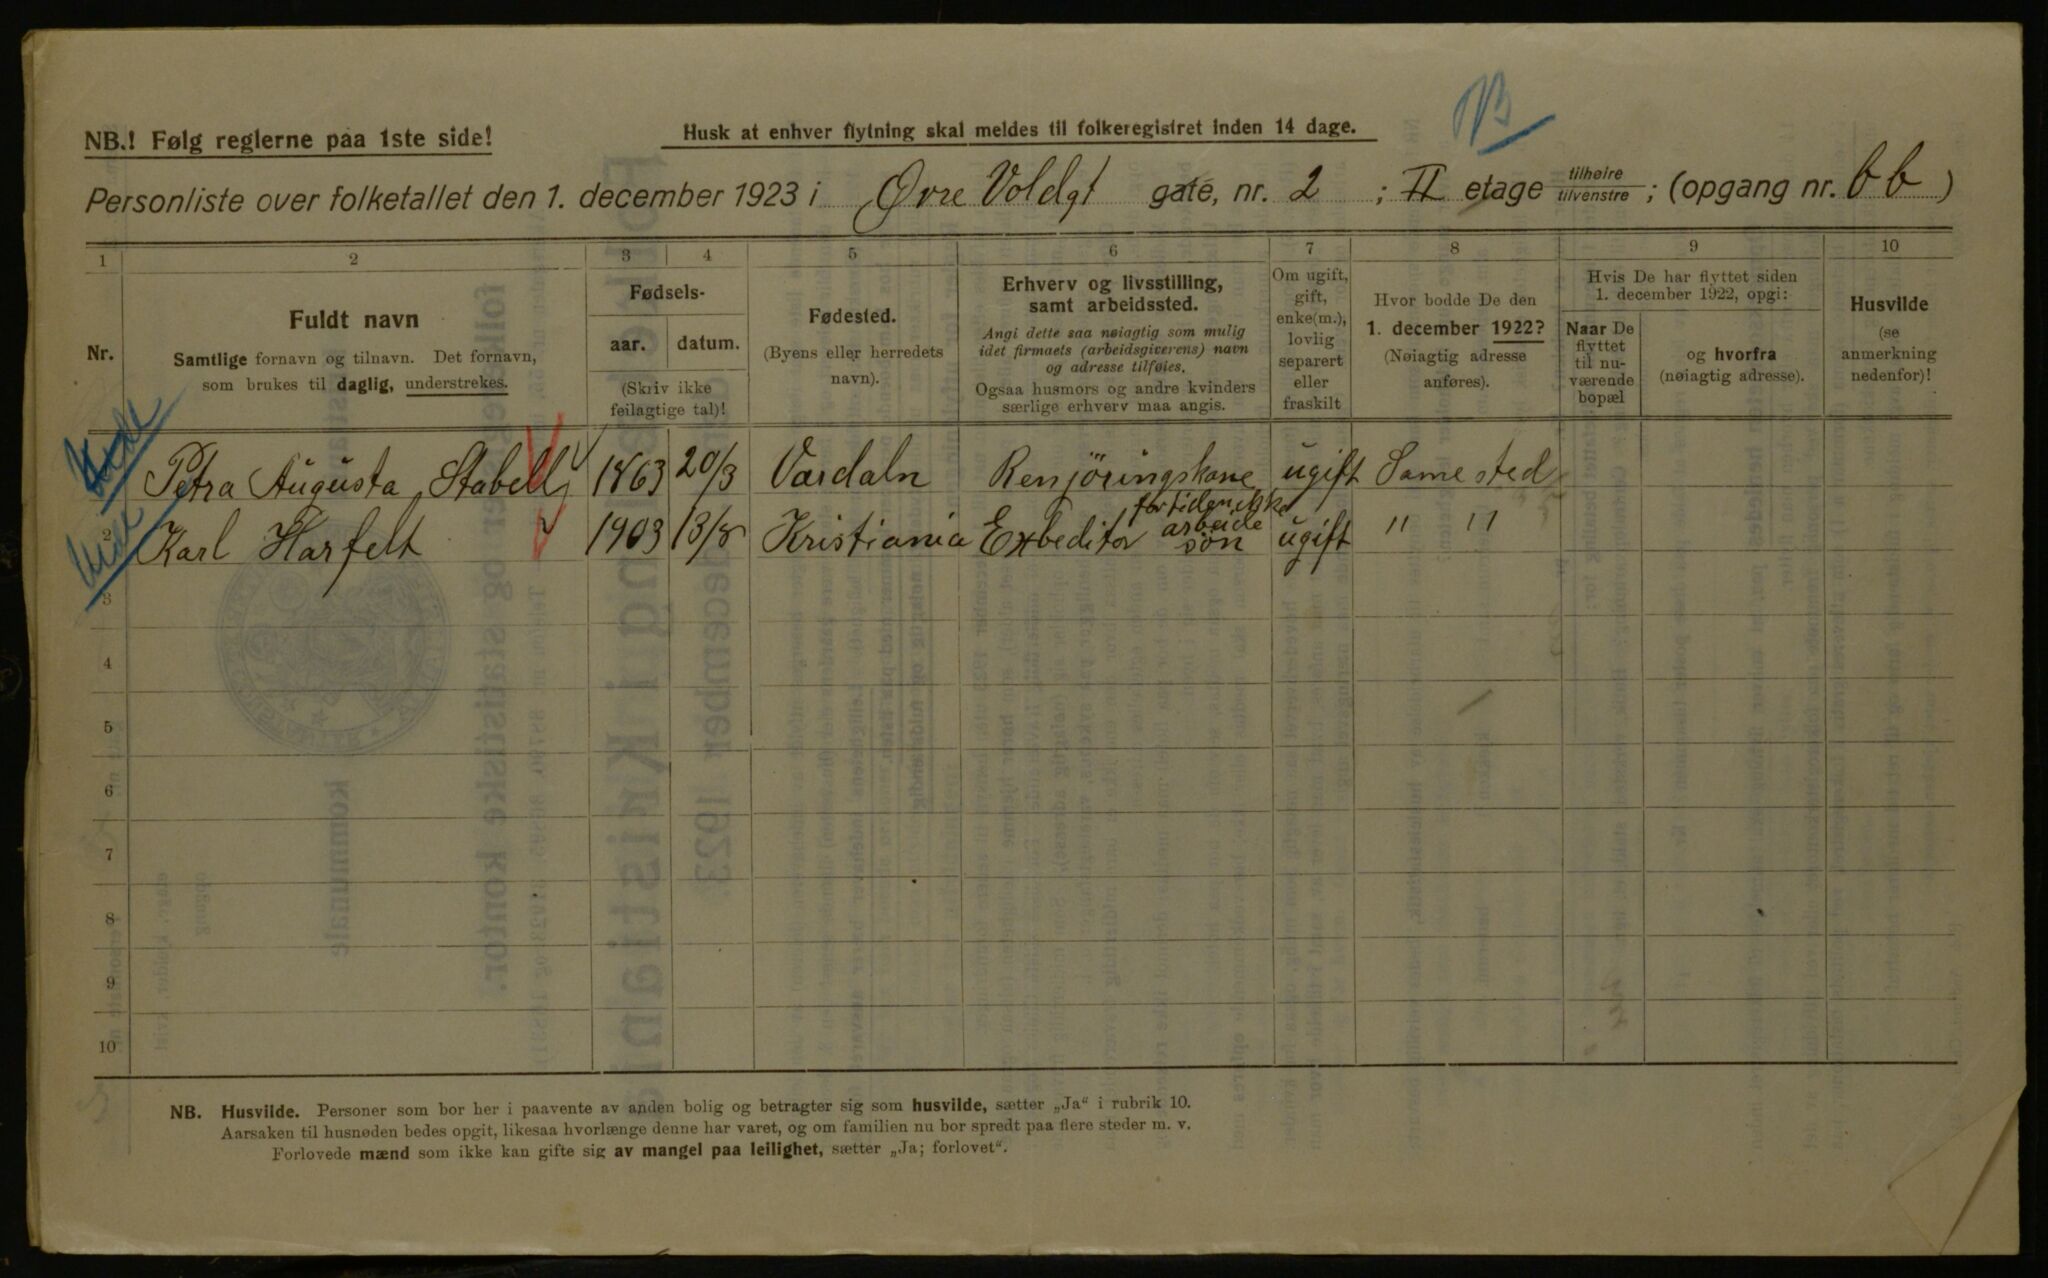 NB.! Følg reglerne paa 1ste side!
Husk at enhver flytning skal meldes til folkeregistret inden 14 dage.
Personliste over folketallet den 1. december 1923 i Øvre Voldgt gate, nr. 2 ; II etage tilhøire tilvenstre ; (opgang nr. bb )
1 2 3 4 5 6 7 8 9 10
Nr.
Fuldt navn
Samtlige fornavn og tilnavn. Det fornavn,
som brukes til daglig, understrekes.
Fødsels-
aar. datum.
(Skriv ikke
feilagtige tal)!
Fødested.
(Byens eller herredets
navn).
Erhverv og livsstilling,
samt arbeidssted.
Angi dette saa nøiagtig som mulig
idet firmaets (arbeidsgiverens) navn
og adresse tilføies.
Ogsaa husmors og andre kvinders
særlige erhverv maa angis.
Om ugift,
gift,
enke(m.),
lovlig
separert
eller
fraskilt
Hvor bodde De den
1. december 1922?
(Nøiagtig adresse
anføres).
Hvis De har flyttet siden
1. december 1922, opgi:
Naar De
flyttet
til nu-
værende
bopæl
og hvorfra
(nøiagtig adresse).
Husvilde
(se
anmerkning
nedenfor)!
Petra Augusta Stabell 1863 20/3 Værdaln Renjöringskone ugift Samme sted
for tiden ikke
arbeide
2 Karl Harfelt 1903 13/8 Kristiania Exbeditør søn ugift " "
3
4
5
6
7
8
9
10
NB. Husvilde. Personer som bor her i paavente av anden bolig og betragter sig som husvilde, sætter „Ja“ i rubrik 10.
Aarsaken til husnøden bedes opgit, likesaa hvorlænge denne har varet, og om familien nu bor spredt paa flere steder m. v.
Forlovede mænd som ikke kan gifte sig av mangel paa leilighet, sætter „Ja; forlovet“.